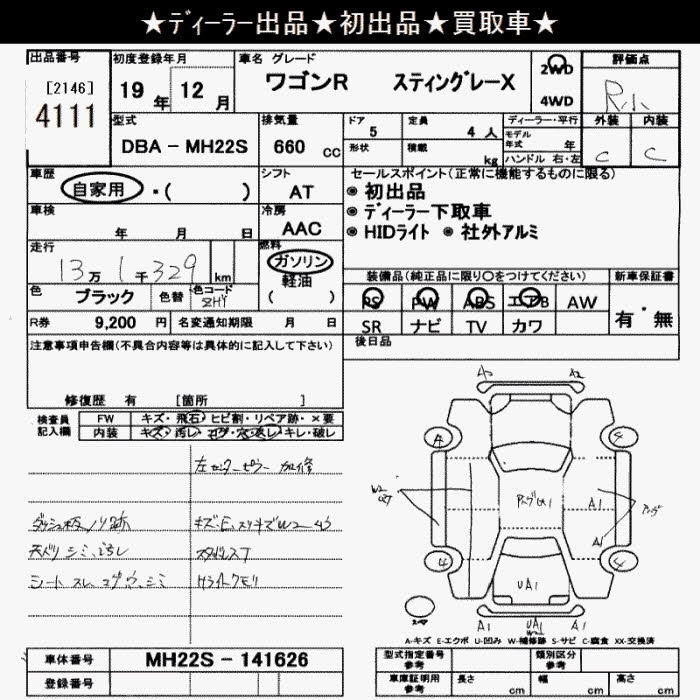 ★ディーラー出品★初出品★買取車★
出品番号 初度登録年月 車名 グレード 評価点
[2146] 19年 12月 ワゴンR スティングレーX 2WD R小
4111 4WD
型式 排気量 ドア 定員 ディーラー・平行 外装 内装
DBA－MH22S 660 cc 5 4人 モデル年式 年 C C
形状 積載 kg ハンドル 右・左
車歴 シフト セールスポイント(正常に機能するものに限る)
自家用・( ) AT ◉ 初出品
車検 冷房 ◉ ディーラー下取車
年 月 日 AAC ◉ HIDライト ◉ 社外アルミ
走行 燃料
13万1千329 km ガソリン
軽油
( )
装備品(純品に限り〇をつけてください) 新車保証書
色 ブラック 色替 色コード ZHY PS PW ABS エアB AW 有・無
R券 9,200円 名変通知期限 月 日 SR ナビ TV カワ
注意事項申告欄(不具合内容等は具体的に記入して下さい) 後日品
修復歴 有 [箇所 ]
検査員記入欄 FW キズ・飛石・ヒビ割・リペア跡・×要
内装 キズ・汚レ・コゲ・穴・スレ・キレ・破レ
左センターピラー 加修
ダッシュ板ノリ跡
天バリ シミ、汚レ スタッドレス
シート スレ コゲ穴 シミ
A2
A 4
W2
A1
A1
4 4
UA1
A1 UA1 A1
W2
A-キズ E-エクボ U-凹み W-補修跡 S-サビ C-腐食 XX-交換済
車体番号 MH22S－141626 型式指定番号 参考 類別区分 参考
登録番号 車庫証明用 参考 長さ cm 幅 cm 高さ cm